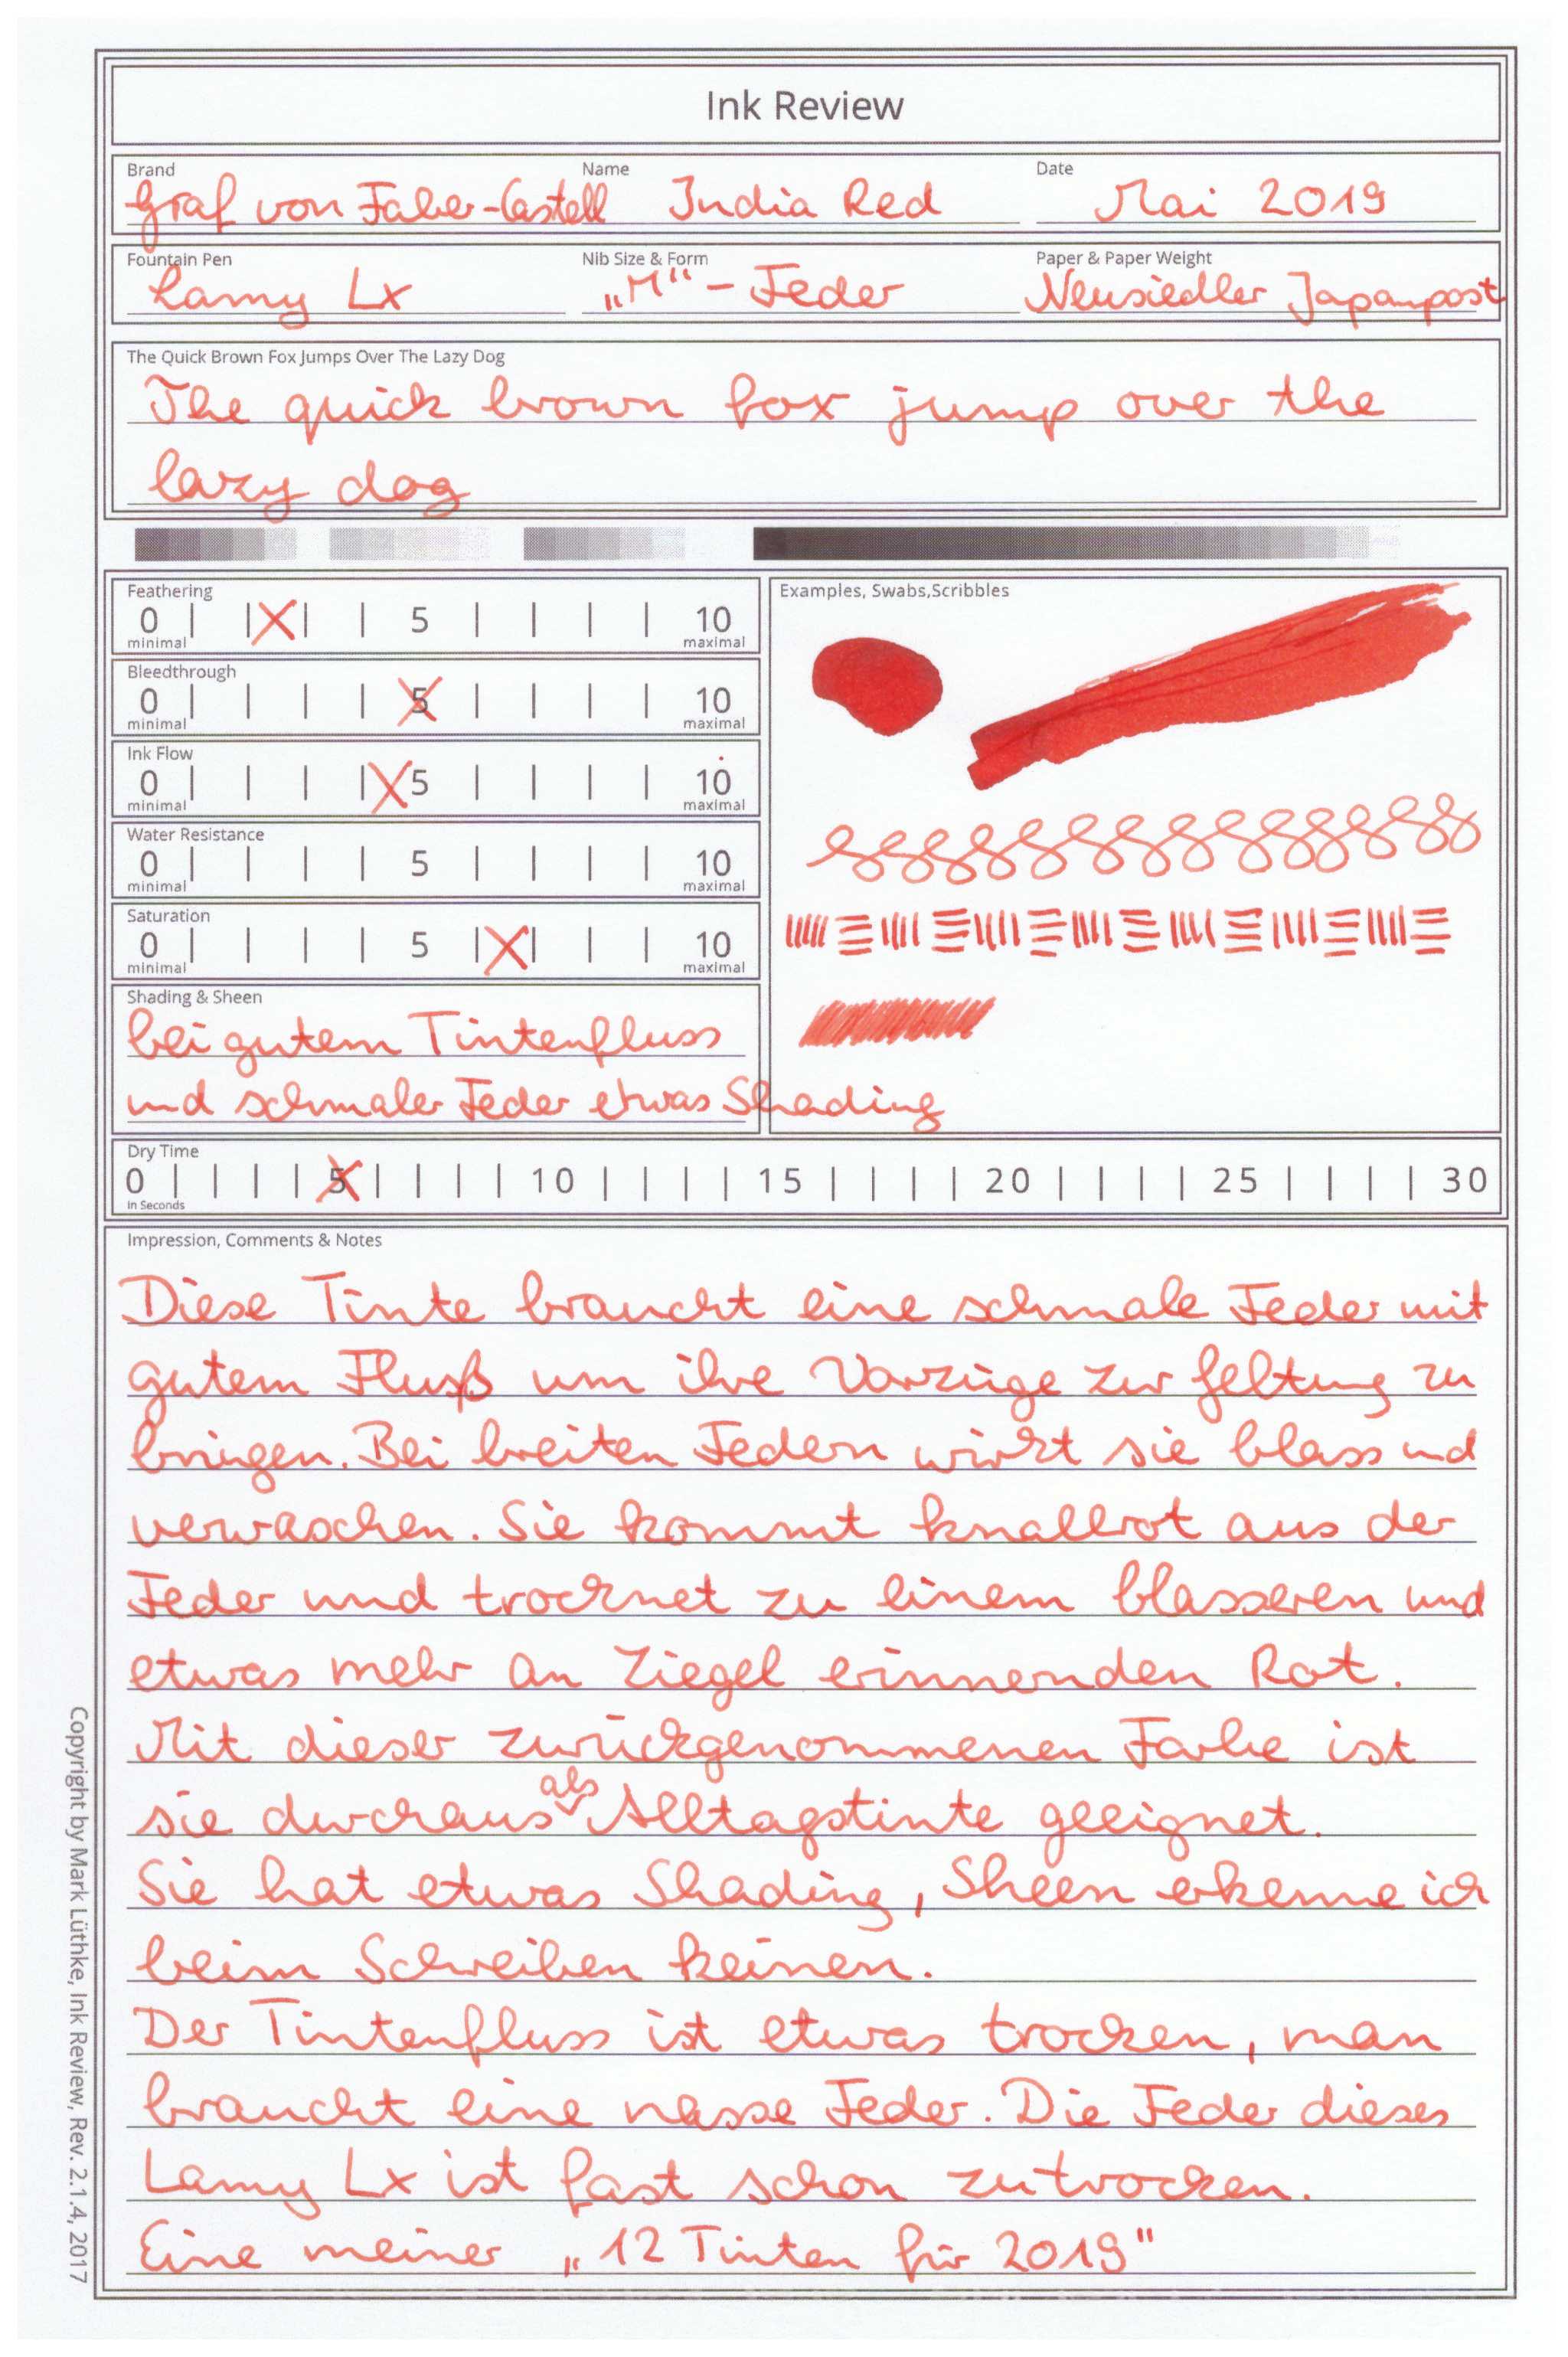 Ink Review
Brand Name Date
Graf von Faber-Castell India Red Mai 2019
Fountain Pen Nib Size & Form Paper & Paper Weight
Lamy Lx „M“ - Feder Neusiedler Japanpost
The Quick Brown Fox Jumps Over The Lazy Dog
The quick brown fox jump over the
lazy dog
Feathering
0 5 10
minimal maximal
Bleedthrough
0 5 10
minimal maximal
Ink Flow
0 5 10
minimal maximal
Water Resistance
0 5 10
minimal maximal
Saturation
0 5 10
minimal maximal
Shading & Sheen
bei gutem Tintenfluss
und schmaler Feder etwas Shading
Examples, Swabs,Scribbles
Dry Time
0 5 10 15 20 25 30
in Seconds
Impression, Comments & Notes
Diese Tinte braucht eine schmale Feder mit
gutem Fluß um ihre Vorzüge zur Geltung zu
bringen. Bei breiten Federn wirkt sie blass und
verwaschen. Sie kommt knallrot aus der
Feder und trocknet zu einem blasseren und
etwas mehr an Ziegel erinnernden Rot.
Mit dieser zurückgenommenen Farbe ist
sie durchaus als Alltagstinte geeignet.
Sie hat etwas Shading, Sheen erkenne ich
beim Schreiben keinen.
Der Tintenfluss ist etwas trocken, man
braucht eine nasse Feder. Die Feder dieses
Lamy Lx ist fast schon zu trocken.
Eine meiner „12 Tinten für 2019"
Copyright by Mark Lüthke, Ink Review, Rev. 2.1.4, 2017